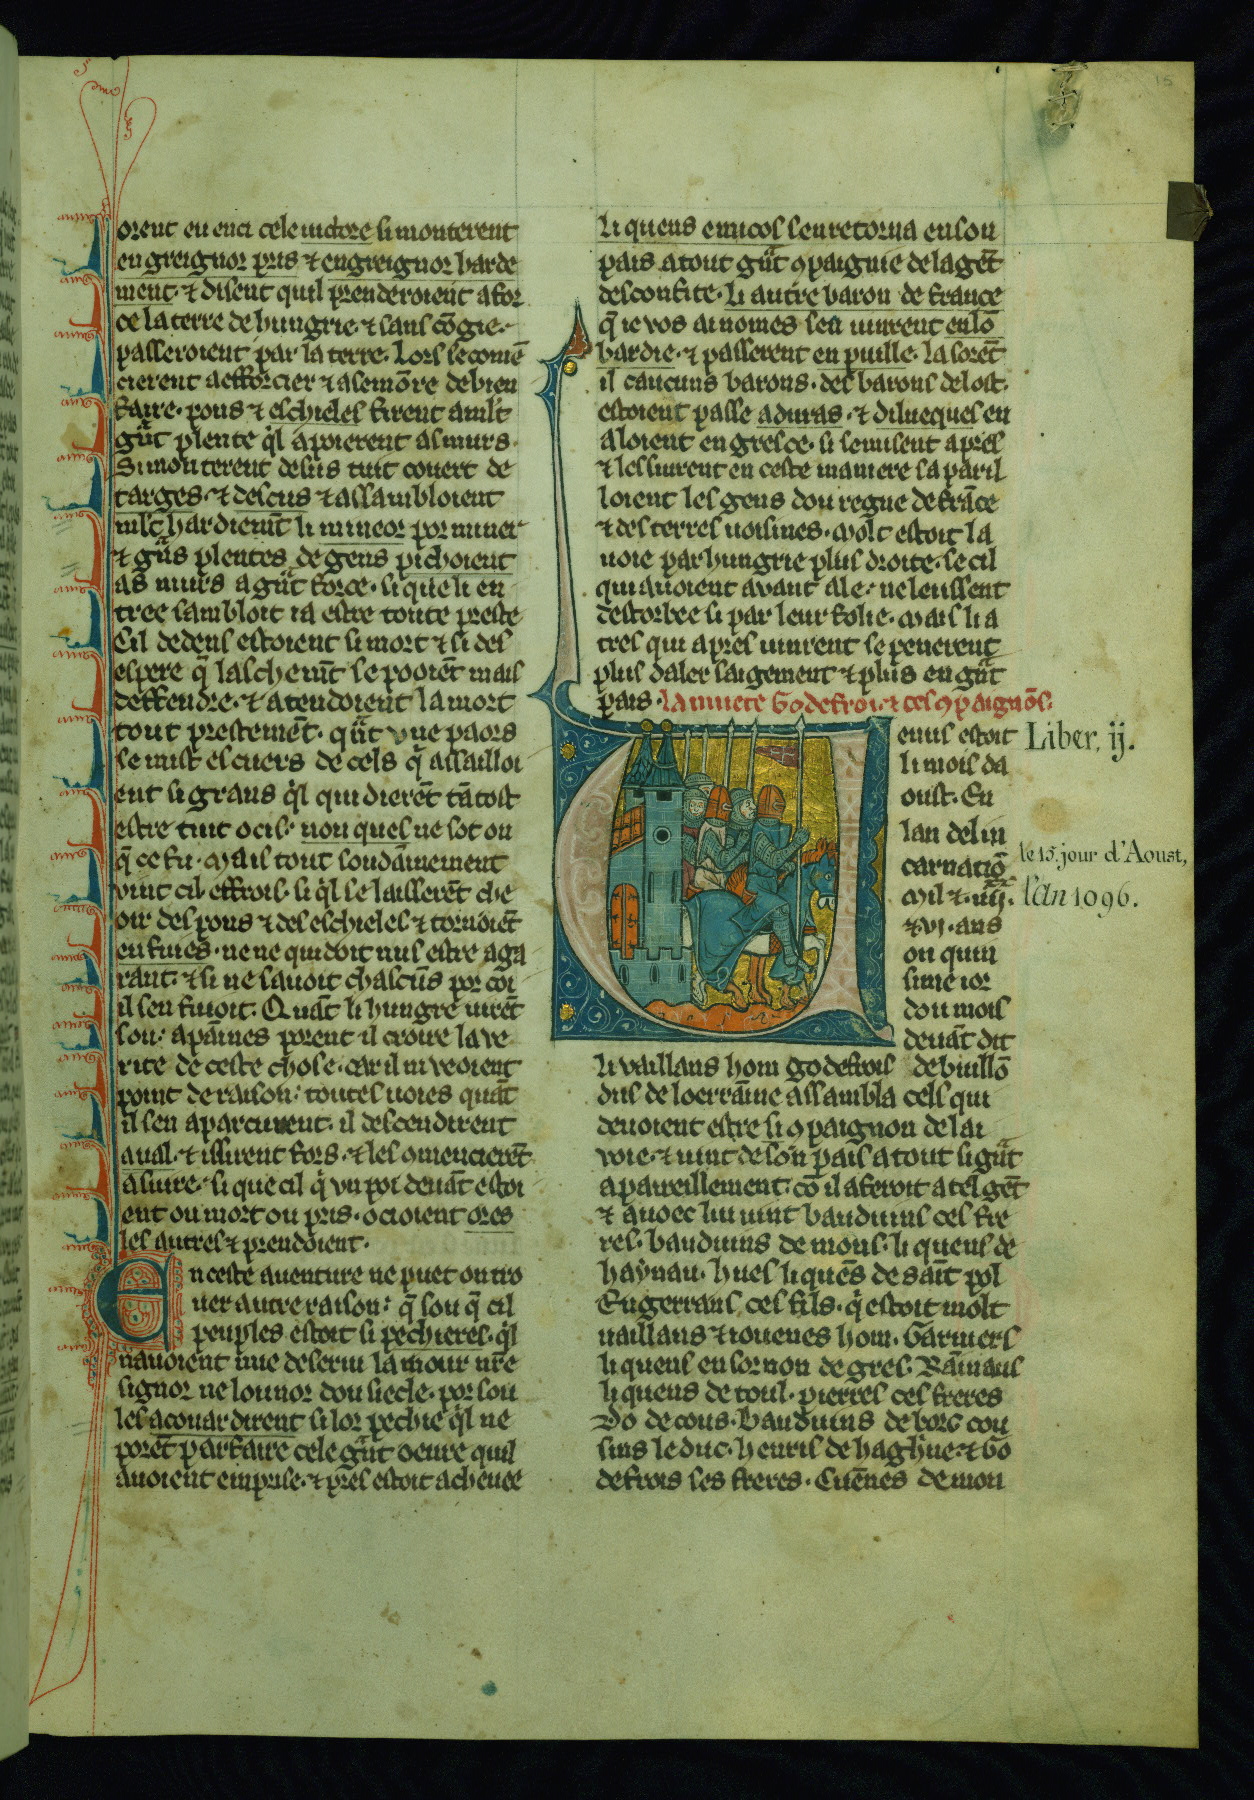 orent eu enci cele uictore si monterent
en greignor pris ⁊ engreignor harde
ment· ⁊ disent quil prenderoient a for
ce la terre de hungrie· ⁊ sans cōgie·
passeroient par la terre· Lors se comē
cierent a efforcier ⁊ a semōre de bien
faire· pons ⁊ eschieles firent a mlt
gᵃ̄t plente q̉l apoierent as murs·
Si monterent desus tuit couert de
targes· ⁊ descus ⁊ assambloient
mlt hardiemt̄ li mineor por miner
⁊ gᵃ̄s plentes de gens pichoient
as murs a gᵃ̄t force· si que li en
tree sambloit ia estre toute preste
Cil dedens estoient si mort ⁊ si des
espere q̄ laschemt̄ se pooiēt mais
deffendre· ⁊ atendoient la mort
tout prestemēt· qᵃ̄t vne paors
se mist es cuers de cels q̄ assailloi
ent si grans q̉l quidierēt tātost
estre tuit ocis· non ques ne sot on
q̄ ce fu· Mais tout soudainement
vint cil effrois· si q̉l se laisserēt che
oir des pons ⁊ des eschieles ⁊ tornoiēt
en fuies· ne ne quidoit nus estre a ga
rant· ⁊ si ne sauoit chascūs por coi
il sen fuioit· Quāt li hungre uirēt
sou· a paines porent il croire la ve
rite de ceste chose· car il ni veoient
point de raison· toutes uoies quāt
il sen aparcurent· il descendirent
aual· ⁊ issirent fors· ⁊ les 9mencierēt
a siure· si que cil q̉ vn poi deuāt estoi
ent ou mort ou pris· ocioient ores
les autres ⁊ prendoient·
En ceste auenture ne puet on tro
uer autre raison· q̄ sou q̄ cil
peuples estoit si pechieres· q̉l
nauoient mie deserui lamour nr̄e
signor ne lounor dou siecle· por sou
les acouardirent si lor pechie q̉l ne
porēt parfaire cele gᵃ̄t oeure quil
auoient emprise· ⁊ pres estoit acheuee
li quens emicos sen retorna en son
pais a tout gᵃ̄t 9paignie de la gēt
desconfite· Li autre baron de france
q̄ ie vos ai nomes sen uinrent en lō
bardie· ⁊ passerent en puille· la sorēt
il caucuns barons· des barons de lost·
estoient passe a duras· ⁊ dilueques en
aloient en gresce· si se misent apres
⁊ les siurent en ceste maniere sa paril
loient les gens dou regne de frāce
⁊ des terres uoisines· Molt estoit la
uoie par hungrie plus droite· se cil
qui auoient auant ale· ne leussent
destorbee si par leur folie· Mais li a
tres qui apres uinrent se penerent
plus daler saigement ⁊ plus en gᵃ̄t
pais· la muete Godefroi· ⁊ de ses 9paignōs·
Uenus estoit
li mois da
oust· En
lan de lin
carnatiō
Mil ⁊ ·iiij·
⁊ vi· ans
ou quin
sime ior
dou mois
deuāt dit
li vaillans hom godefrois de buillō
dus de loerraine assambla cels qui
deuoient estre si 9paignon de la i
voie· ⁊ uint de son pais a tout si gᵃ̄t
apareillement· cō il aferoit a tel gēt
⁊ auoec lui uint bauduins ces fre
res· bauduins de mons· li quens de
haynau· hues li quēs de sāit pol
Engerrans ces fils· q̉ estoit molt
uaillans ⁊ iouenes hom· Garniers
li quens en sornon de gres· Rāinaus
li quens de toul· pierres ces freres
Do de cons· Bauduins de borc cou
sins le duc· henris de haghue· ⁊ Go
defrois ses freres· Cuēnes de mon
Liber, ij.
le 15. jour d'Aoust,
l'An 1096.
15